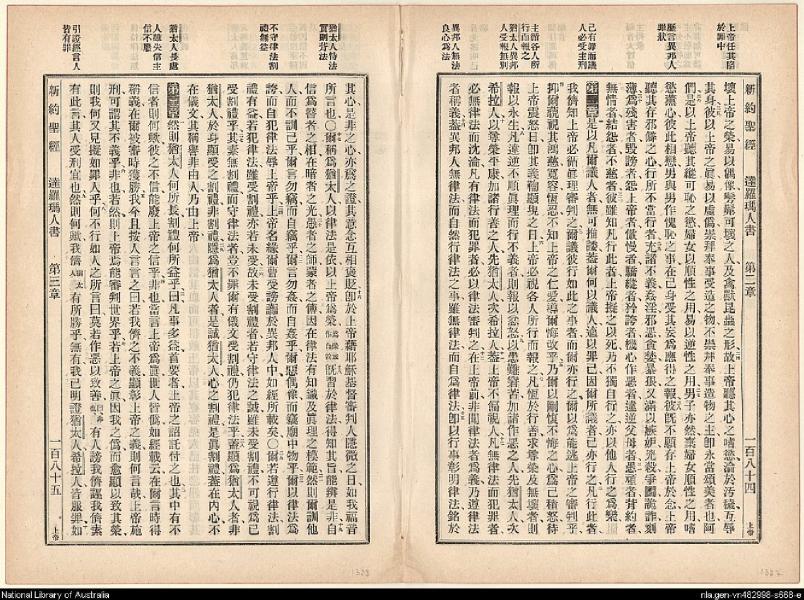 上帝任其陷於罪中
歷言異邦人罪狀
己有罪而議人必受主刑
主循各人所行而報之
猶太人異邦人受報無別
異邦人無法良心爲法
新約聖經 達羅瑪人書 第二章 一百八十四 上帝
壞上帝之榮易以偶像髣髴可壞之人及禽獸昆蟲之形故上帝聽其心之嗜慾淪於汚穢互辱
其身彼以上帝之眞易以虛僞崇拜奉事受造之物不崇拜奉事造物之主卽永當頌美者也阿
們是以上帝聽其縱可恥之慾婦女以順性之用易以逆性之用男子亦然棄婦女順性之用嗜
慾薰心彼此相戀男與男作愧恥之事在己身受其妄爲應得之報彼旣不願存上帝於念上帝
聽其存邪僻之心行所不當行者充諸不義姦淫邪惡貪婪暴狠又滿以嫉妒兇殺爭鬭詭詐刻
薄爲殘害者毀謗者怨上帝者傲慢者驕縱者矜誇者機心作惡者違逆父母者愚頑者背約者
無情者結怨者不慈者彼雖知凡行此者上帝擬之以死乃不獨自行之亦以他人行之爲樂
第二章是以凡爾議人者無可推諉蓋爾何以議人適以罪己因爾所議者己亦行之凡行此者
我儕知上帝必循眞理審判之爾議彼行如此之事者而爾亦行之爾以爲能逃上帝之審判乎
抑爾藐視其鴻慈寬容恆忍不知上帝之仁愛導爾悔改乎乃爾以剛愎不悔之心爲己積怒待
上帝震怒日卽其義鞫顯臾之日上帝必視各人所行而報之凡恆於行善求尊榮及無壞者則
報以永生凡違逆不順眞理而行不義者則報以忿怒以患難窘苦加諸作惡之人先猶太人次
希拉人以尊榮平康加諸行善之人先猶太人次希拉人蓋上帝不偏視人凡無律法而犯罪者
必無律法而沈淪凡有律法而犯罪者必以律法審判之在上帝前非聞律法者爲義乃遵律法
者稱義蓋異邦人無律法而自然行律法之事雖無律法而自爲律法卽以行事彰明律法銘於
猶太人恃法實則背法
不守律法割禮無益
猶太人長處
人雖失信主信不廢
引證經言人皆有罪
其心是非之心亦爲之證其意念互相褒貶卽於上帝藉耶穌基督審判人隱微之日如我福音
所言也〇爾稱爲猶太人以律法是依以上帝爲榮旣習於律法得知其旨能辨是非自
信爲瞽者之相在暗者之光愚者之師蒙者之傅因在律法有知識及眞理之模範然則爾訓他
人而不訓己乎爾言勿竊而自竊乎爾言勿姦而自姦乎爾惡偶像而竊廟中物乎爾以律法爲
誇而自犯律法辱上帝乎上帝名緣爾曹受謗讟於異邦人中如經所載矣〇爾若遵行律法割
禮有益若犯律法雖受割禮亦若未受故未受割禮者若守律法之誡雖未受割禮不可視爲已
受割禮乎其素無割禮而守律法者豈不罪爾有儀文受割禮仍犯律法乎蓋顯爲猶太人者非
猶太人於身顯受之割禮非割禮隱爲猶太人者是誠猶太人心之割禮是眞割禮蓋在內心不
在儀文其稱譽非由人乃由上帝
第三章然則猶太人何所長割禮何所益乎曰凡事多益首要者上帝之詔託付之也其中有不
信者則何如彼之不信能廢上帝之信乎非也當言上帝爲眞世人皆僞如經載云在爾言時得
稱義在爾被審時獲勝我今且按人言言之曰若我儕之不義顯彰上帝之義則何言哉上帝施
刑可謂其不義乎非也若然則上帝焉能審判世界乎若上帝之眞因我之僞而愈顯以致其榮
則我何又見擬如罪人乎何不行如人之所言曰莫若作惡以致善有人謗我儕謂我儕素
有此言其人受刑宜也然則何如我儕有所勝乎無有我已明證猶太人希拉人皆服罪如
新約聖經 達羅瑪人書 第三章 一百八十五 上帝
National Library of Australia
nla.gen-vn482998-s668-e